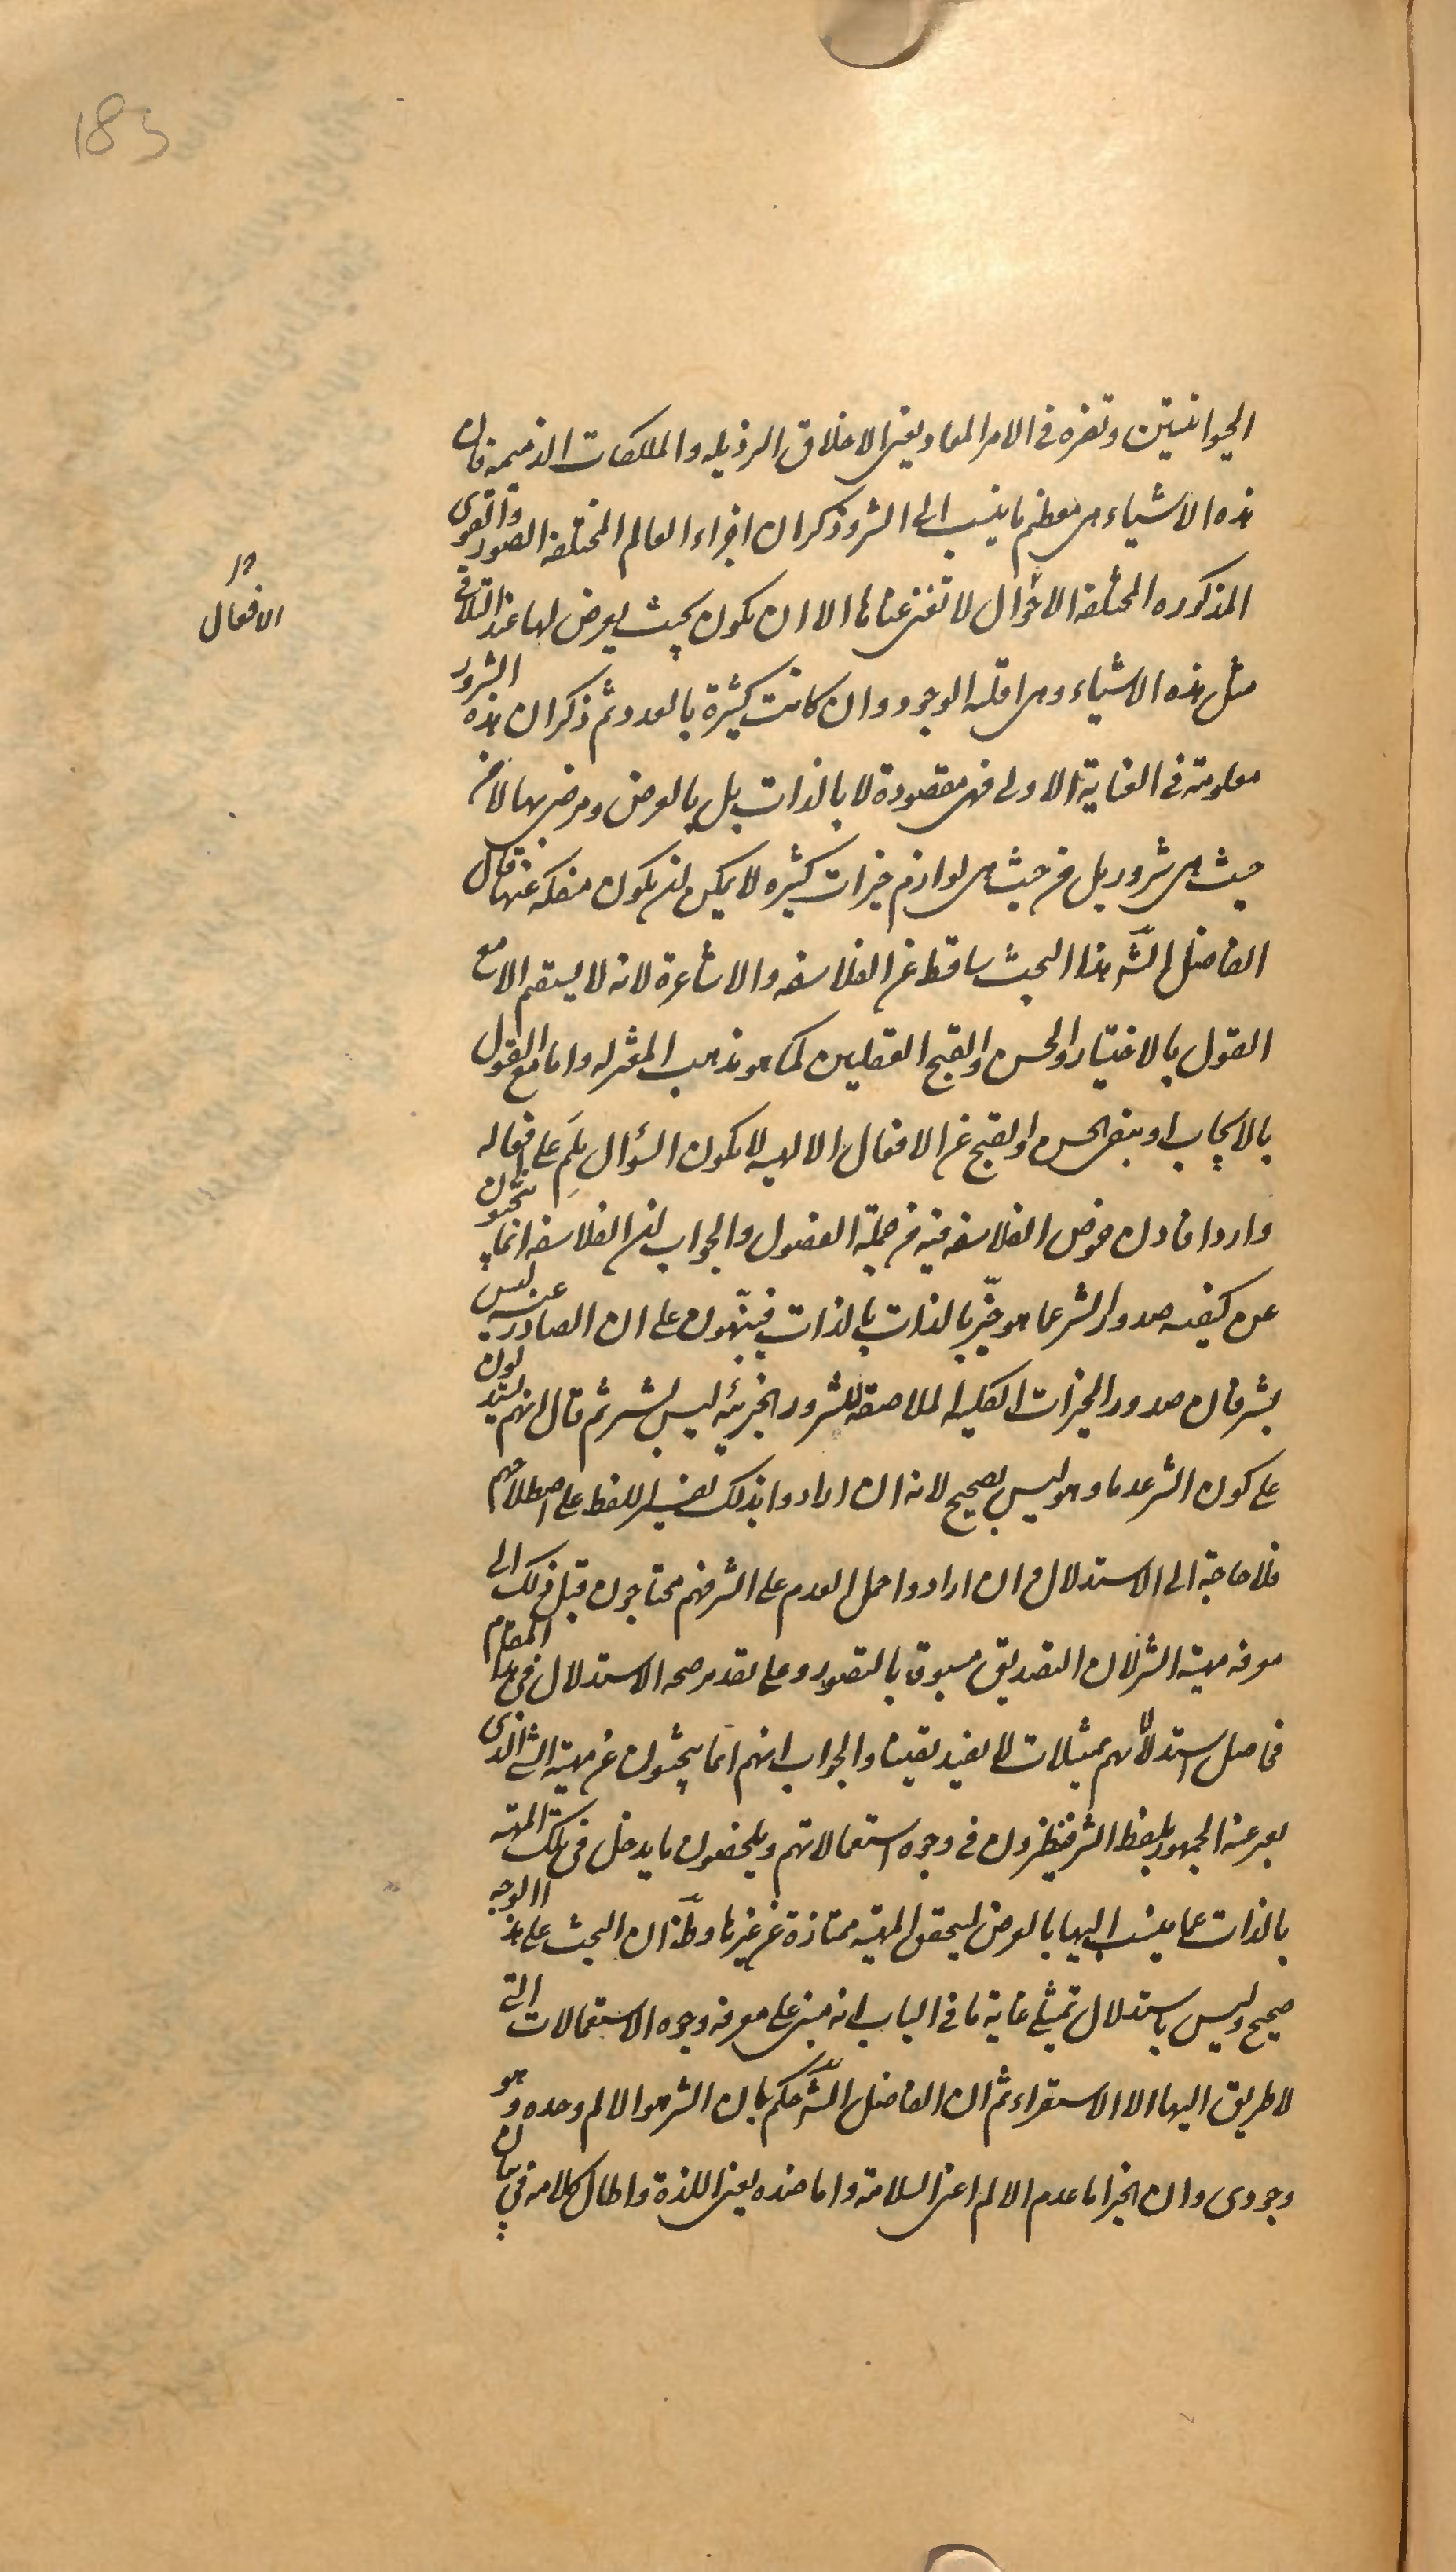 183
الحيوانيتين وتضره فى الامر المعاد يعنى الاخلاق الرذيله والملكات الذميمه فان
هذه الاشياء هى معظم ما ينسب الى الشر وذكر ان اجزاء العالم المختلفه الصور والقوى
المذكوره المختلفه الاحوال لا تغنى غناها الا ان يكون بحيث يعرض لها عند التلاقى
الافعال
مثل هذه الاشياء وهى اقليه الوجود وان كانت كثيرة بالعدد ثم ذكر ان هذه الشرور
معلومة فى العناية الاولى فهى مقصودة لا بالذات بل بالعرض ومرضى بها لا من
حيث هى شرور بل من حيث هى لوازم خيرات كثيره لا يمكن ان يكون منفكه عنها قال
الفاضل الشه هذا البحث ساقط عن الفلاسفه والاشاعرة لانه لا يستقيم الا مع
القول بالاختيار والحسن والقبح العقليين كما هو مذهب المعتزله واما مع القول
بالايجاب او بنفى الحسن والقبح عن الافعال الالهيه لا يكون السؤال بلم على افعاله
واردا فاذن خوض الفلاسفه فيه من جملة الفضول والجواب ان الفلاسفه انما يبحثون
عن كيفيه صدور الشر عما هو خير بالذات بالذات فينبهون على ان الصادر عنه ليس
بشر فان صدور الخيرات الكليه الملاصقه للشرور الجزئيه ليس بشر ثم قال انهم يستدلون
على كون الشر عدما وهو ليس بصحيح لانه ان ارادوا بذلك تفسير اللفظ على اصطلاحهم
فلا حاجة الى الاستدلال وان ارادوا حمل العدم على الشر فهم محتاجون قبل ذلك الى
معرفه مهية الشر لان التصديق مسبوق بالتصور وعلى تقدير صحه الاستدلال فى هذا المقام
فحاصل استدلالهم تمثيلات لا يفيد يقينا والجواب انهم انما يبحثون عن مهية الشئ الذى
يعبر عنه الجمهور بلفظ الشر فينظرون فى وجوه استعمالاتهم ويلخصون ما يدخل فى تلك المهيه
بالذات عما ينسب اليها بالعرض ليتحقق المهيه ممتازة عن غيرها وظ ان البحث على هذا الوجه
صحيح وليس باستدلال تمثيلى غاية ما فى الباب انه مبنى على معرفه وجوه الاستعمالات التى
لا طريق اليها الا الاستقراء ثم ان الفاضل الشه حكم بان الشر هو الالم وحده وهو
وجودى وان الخير اما عدم الالم اعنى السلامة واما ضده يعنى اللذة واطال كلامه فى بيان